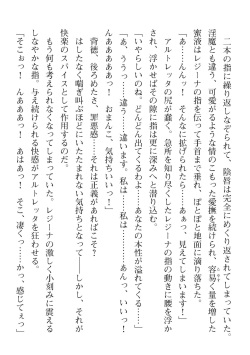 二本の指に繰り返しなぞられて、陰唇は完全にめくり返されてしまっていた。
淫魔とも違う、可愛がるような情のこもった愛撫を続けられ、容易く量を増した
蜜液はレジーナの指を伝って手首まで垂れ、ぽとぽと地面に滴り落ちる。
「あ……んんっ！　そんなに……されたらっ……あぁっ、見えてしまいます！」
アルトレッタの尻が蠢く。急所を知り尽くしたレジーナの指の動きに腰を浮か
され、浮かせばその隙に指は更に深みへと滑り込む。
「いやらしいのね、どんどん出てくるわよ……あなたの本性が溢れてくる……」
「あ、ううっ……違う……違います、私は……私は……あんっ、いいっ！
んあああああっ！　おまんこ……気持ちいいっ！」
背徳、後ろめたさ、罪悪感……それは正義があればこそ？
はしたなく喘ぎ叫ぶほどにいたたまれない気持ちとなって――しかし、それが
快楽のスパイスとして作用するのだ。
もう何も考えられなくなってしまっていた。レジーナの激しく小刻みに震える
しなやかな指。与え続けられる快感がアルトレッタを狂わせる。
「そこぉっ！　んあああっ！　あはぁっ！　そこ、凄くっ……かっ、感じてぇっ」